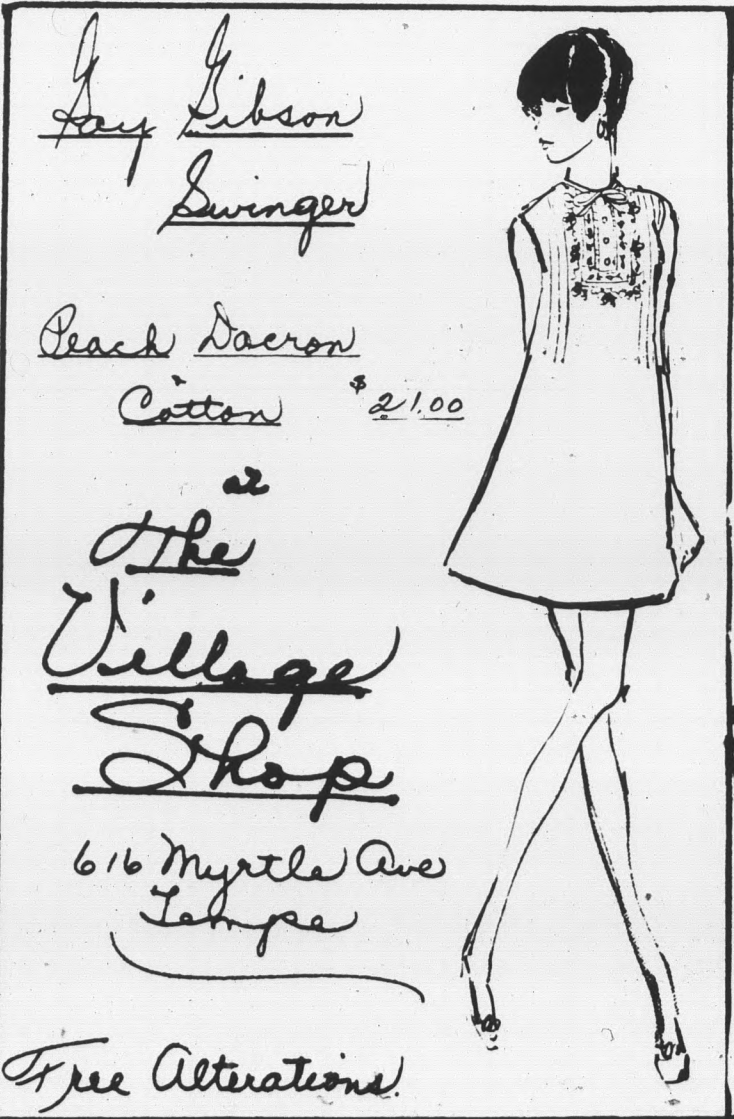 Gay Gibson
Swinger
Peach Dacron
&
Cotton $21.00
at
The
Village
Shop
616 Myrtle Ave
Tempe
Free Alterations.